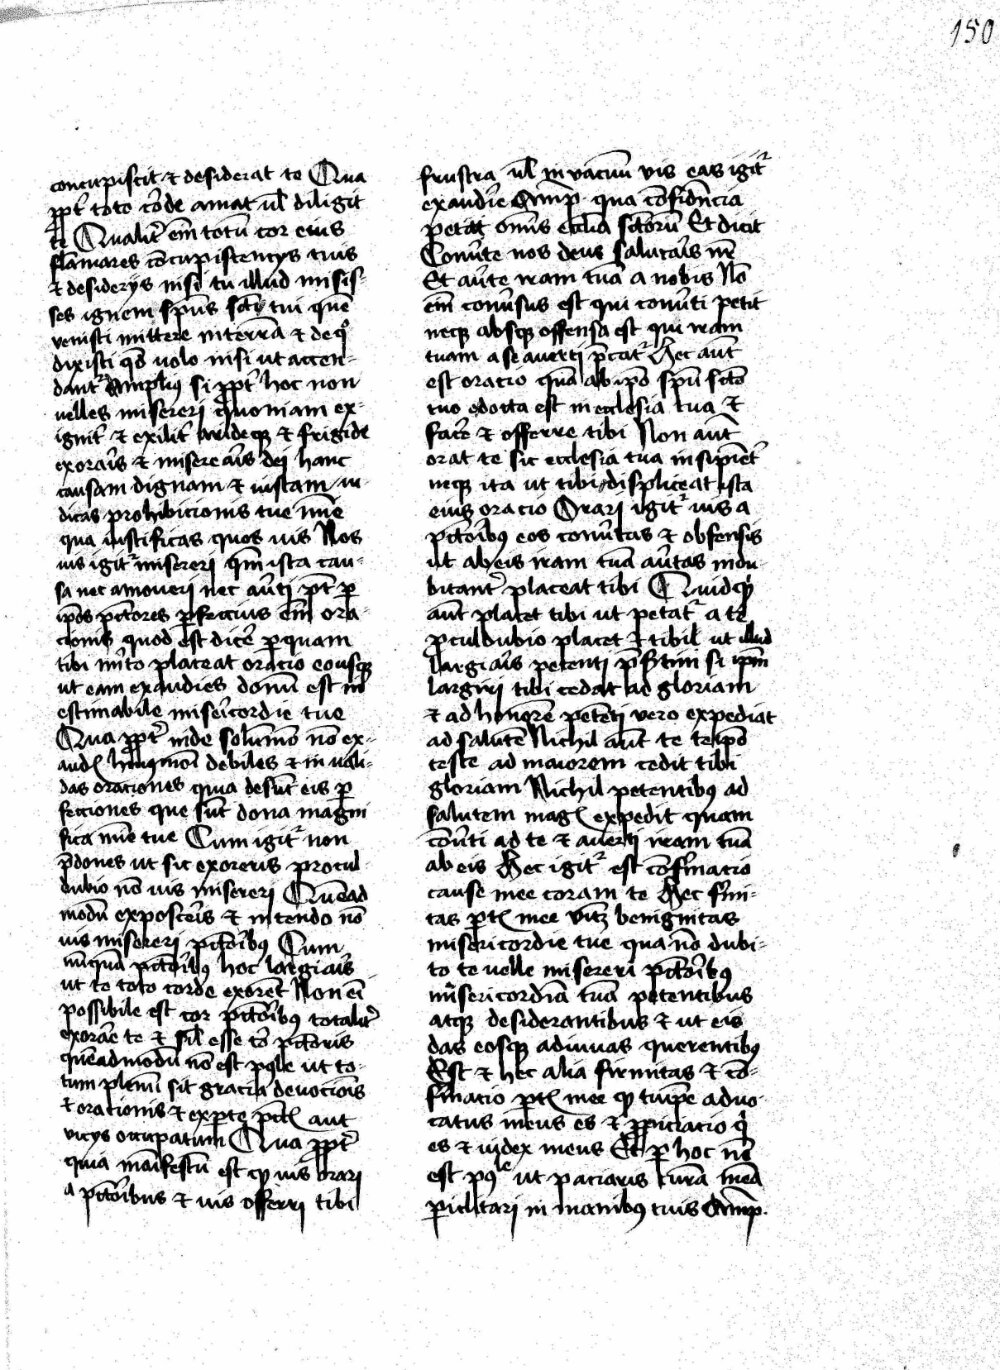 150
concupiscit ⁊ desiderat te Qua
ꝓpt̃ toto cõde amat ul̃ diligit
te Qualit̃ em̃ totũ cor eius
flãmares cõcupiscencijs tuis
⁊ desiderijs nisi tu illud misis-
ses ignem sp̃us sc̃i tui quẽ
venisti mittere in terrã ⁊ de qͦ
dixisti qd̃ volo nisi ut accen-
dant᷑ Amplius si ꝓpt̃ hoc non
velles misereri quoniam ex-
ignit᷑ ⁊ exilit᷑ arideqꝫ ⁊ frigide
exorar̃is ⁊ miserear̃is dei hanc
causam dignam ⁊ iustam iu-
dicas prohibicionis tue mĩe
qua iustificas quos uis Nos
uis igit᷑ misereri qm̃ ista cau-
sa nec amoueri nec aũti pt̃ ꝑ
ip̃os pc̃tores ꝑfeccuis em̃ ora-
cionis quod est dicẽ ꝑquam
tibi m̃ito placeat oracio eousqꝫ
ut eam exaudies donũ est in-
estimabile miser̃icordie tue
Qua ꝓpt̃ inde solum̃o nõ ex-
audis huiusmõi debiles ⁊ inuali-
das oraciones quia desũt eis ꝑ
fecciones que sũt dona magni
fica mĩe tue Cum igit᷑ non
p̃dones ut sic exoreris procul-
dubio nõ uis misereri Quẽad
modũ exposcẽis ⁊ intendo nõ
uis misereri pc̃torib̃ꝰ Cum
nũquã pc̃torib̃ꝰ hoc largiar̃is
ut te toto corde exorẽt Non em̃
possibile est cor pc̃torib̃ꝰ totalit᷑
exorar̃e te ⁊ sil̃ esse cõ pc̃toris
quẽadmodũ nõ est pꝰle ut to-
tum plenũ sit gracia deuocionis
⁊ orationis ⁊ ex ꝑte pc̃ti aut
vicijs occupatum Qua ꝓpt̃
quia mãifestũ est qꝫ uis orari
a pc̃torib̃us ⁊ uis offerri tibi
frustra ul̃ in vacuũ vis eas igit᷑
exaudir̃e Amp̃. qua cõfidẽncia
petat om̃is eccl̃ia sc̃torũ Et dicit
Conũte nos deus salutar̃is nr̃
Et aũte iram tuã a nobis Nõ
em̃ conũsus est qui conũti petit
neqꝫ absqꝫ offensa est qui iram
tuam a se auerti p̃cat᷑ Hec aũt
est oracio quã ab ip̃o sp̃u sc̃to
tuo edocta est in ecclesia tua ⁊
facẽ ⁊ offerre tibi Non aũt
orat te sic ecclesia tua insipiẽt᷑
neqꝫ ita ut tibi displiceat ista
eius oracio Orari igit᷑ uis a
pc̃torib̃ꝰ eos conũtas ⁊ obfensis
ut ab eis iram tuã aũtas indu-
bitant᷑ placeat tibi Quidqͥd
aũt placet tibi ut petat᷑ a te
ꝓculdubio placet ⁊ tibil ut illud
largiar̃is petenti p̃sertim si ip̃m
largiri tibi cedat ad gloriam
⁊ ad honorẽ petẽti vero expediat
ad salutẽ Nichil aũt te te ip̃o
teste ad maiorem cedit tibi
gloriam Nichil petentibꝰ ad
salutem magis expedit quam
cõũti ad te ⁊ auerti iram tuã
ab eis Hec igit᷑ est cõfirmacio
cause mee coram te Hec firmi-
tas ꝑtis mee vitꝫ benignitas
misericordie tue qua nõ dubi-
to te uelle misereri pc̃torib̃ꝰ
mĩsericordiã tuã petentibus
atqꝫ desiderantibus ⁊ ut eis
das eosqꝫ adiuuas querentibꝰ
Est ⁊ hec alia firmitas ⁊ cõ-
firmacio ꝑtis mee qꝫ tu ip̃e aduo-
catus meus es ⁊ ꝓpiciacio qͥ
es ⁊ iudex meus Et ꝑ hoc nõ
est pꝰle ut paciaris curã meã
periclitari in manibꝰ tuis Amp̃.